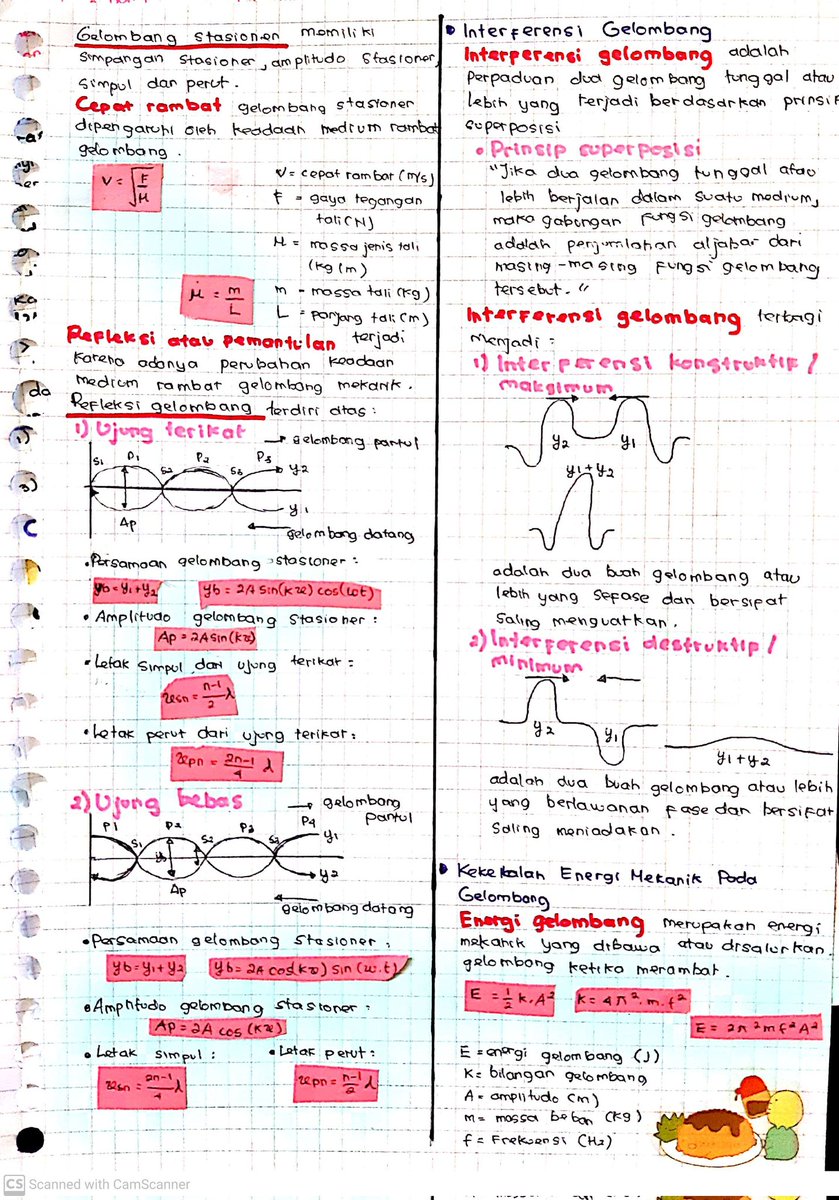 Gelombang stasioner memiliki
simpangan stasioner, amplitudo stasioner,
simpul dan perut.
Cepat rambat gelombang stasioner
dipengaruhi oleh keadaan medium rambat
gelombang.
V = √F/μ
V = cepat rambat (m/s)
F = gaya tegangan
tali (N)
μ = massa jenis tali
(kg/m)
μ = m/L
m = massa tali (kg)
L = panjang tali (m)
Refleksi atau pemantulan terjadi
karena adanya perubahan keadaan
medium rambat gelombang mekanik.
Refleksi gelombang terdiri atas:
1) Ujung terikat
→ gelombang pantul
S1 P1 S2 P2 S3 P3 y2
y1
Ap
← gelombang datang
• Persamaan gelombang stasioner:
yb = y1 + y2 yb = 2A sin(kx) cos(ωt)
• Amplitudo gelombang stasioner:
Ap = 2A sin(kx)
• Letak simpul dari ujung terikat:
xsn = n-1/2 λ
• Letak perut dari ujung terikat:
xpn = 2n-1/4 λ
2) Ujung bebas
→ gelombang
pantul
P1 S1 P2 S2 P3 S3 P4 y1
yb y2
Ap
← gelombang datang
• Persamaan gelombang stasioner:
yb = y1 + y2 yb = 2A cos(kx) sin(ω.t)
• Amplitudo gelombang stasioner:
Ap = 2A cos(kx)
• Letak simpul: • Letak perut:
xsn = 2n-1/4 λ xpn = n-1/2 λ
• Interferensi Gelombang
Interperensi gelombang adalah
perpaduan dua gelombang tunggal atau
lebih yang terjadi berdasarkan prinsip
superposisi
• Prinsip superposisi
"Jika dua gelombang tunggal atau
lebih berjalan dalam suatu medium,
maka gabungan fungsi gelombang
adalah penjumlahan aljabar dari
masing-masing fungsi gelombang
tersebut."
Interferensi gelombang terbagi
menjadi:
1) Interperensi konstruktif /
maksimum
y2 y1
y1 + y2
adalah dua buah gelombang atau
lebih yang sefase dan bersipat
saling menguatkan.
2) Interferensi destruktip /
minimum
y2 y1
y1 + y2
adalah dua buah gelombang atau lebih
yang berlawanan fase dan bersifat
saling meniadakan.
• Kekekalan Energi Mekanik Pada
Gelombang
Energi gelombang merupakan energi
mekanik yang dibawa atau disalurkan
gelombang ketika merambat.
E = 1/2 k.A² k = 4π².m.f²
E = 2π²mf²A²
E = energi gelombang (J)
K = bilangan gelombang
A = amplitudo (m)
m = massa beban (kg)
f = Frekuensi (Hz)
CS Scanned with CamScanner